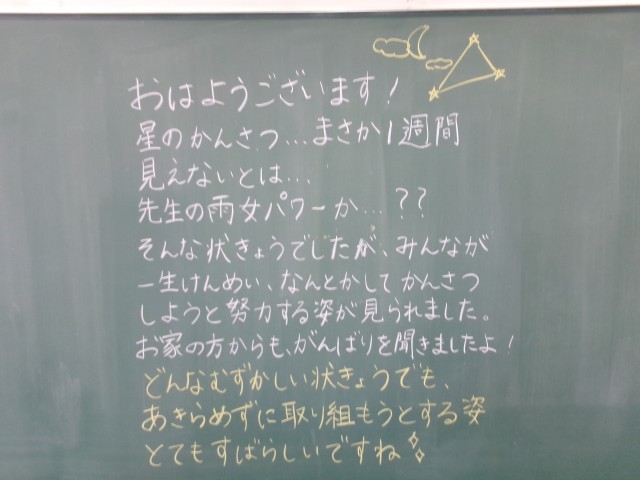 おはようございます!
星のかんさつ…まさか1週間
見えないとは…
先生の雨女パワーか…??
そんな状きょうでしたが、みんなが
一生けんめい、なんとかしてかんさつ
しようと努力する姿が見られました。
お家の方からも、がんばりを聞きましたよ!
どんなむずかしい状きょうでも、
あきらめずに取り組もうとする姿
とてもすばらしいですね